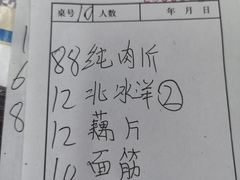 桌号 10 人数 年 月 日
1
6
8
88 纯肉1斤
12 北冰洋②
12 藕片
10 面筋